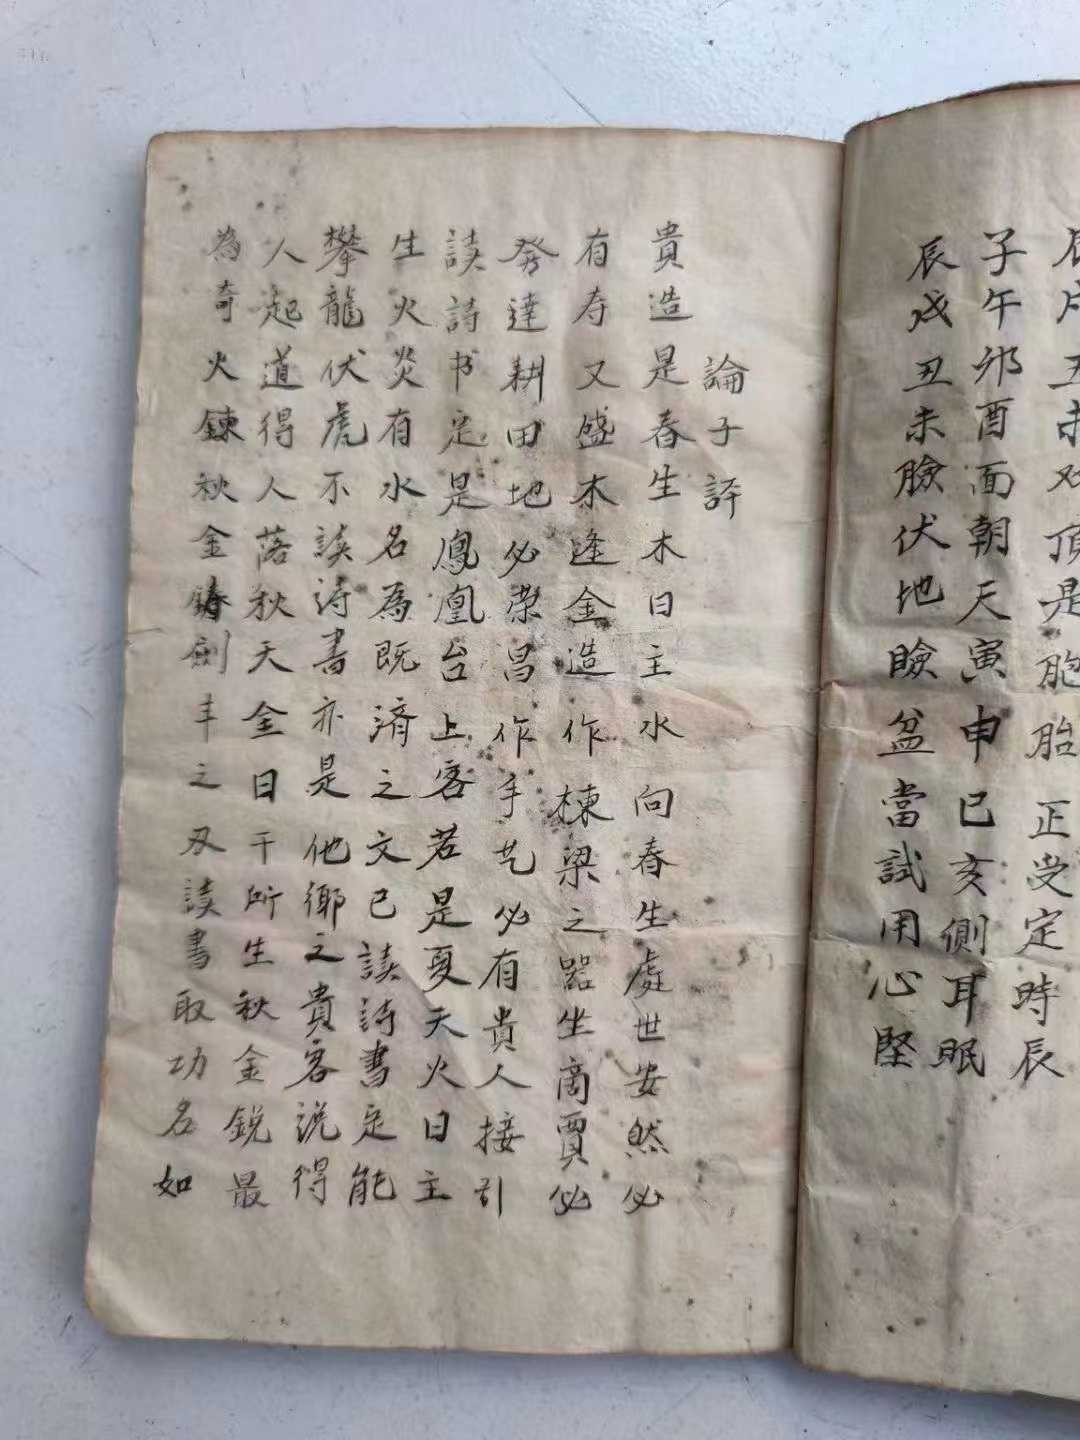 辰戌丑未對頂是胞胎正受定時辰
子午卯酉面朝天寅申巳亥側耳眠
辰戌丑未臉伏地臉盆當試用心堅
論子評
貴造是春生木日主水向春生處世安然必
有寿又盛木逢金造作棟梁之器坐商賈必
発達耕田地必荣昌作手艺必有貴人接引
読詩书定是鳳凰台上客若是夏天火日主
生火炎有水名為既済之文已読詩書定能
攀龍伏虎不読诗書亦是他鄉之貴客説得
人起道得人落秋天金日干所生秋金鋭最
為奇火鍊秋金鋳劍丰之刃読書取功名如